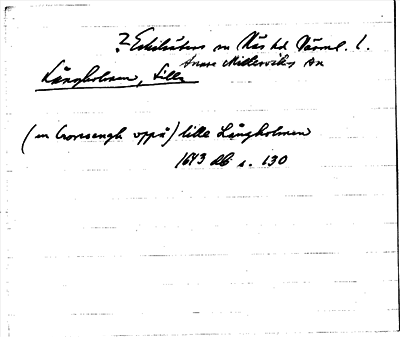 ? Eskilsäters sn Näs hd Värml. l.
Anm Millesviks sn
Långholmen, Lilla
(en Crossengh uppå) lille Långholmen
1643 DB s. 130